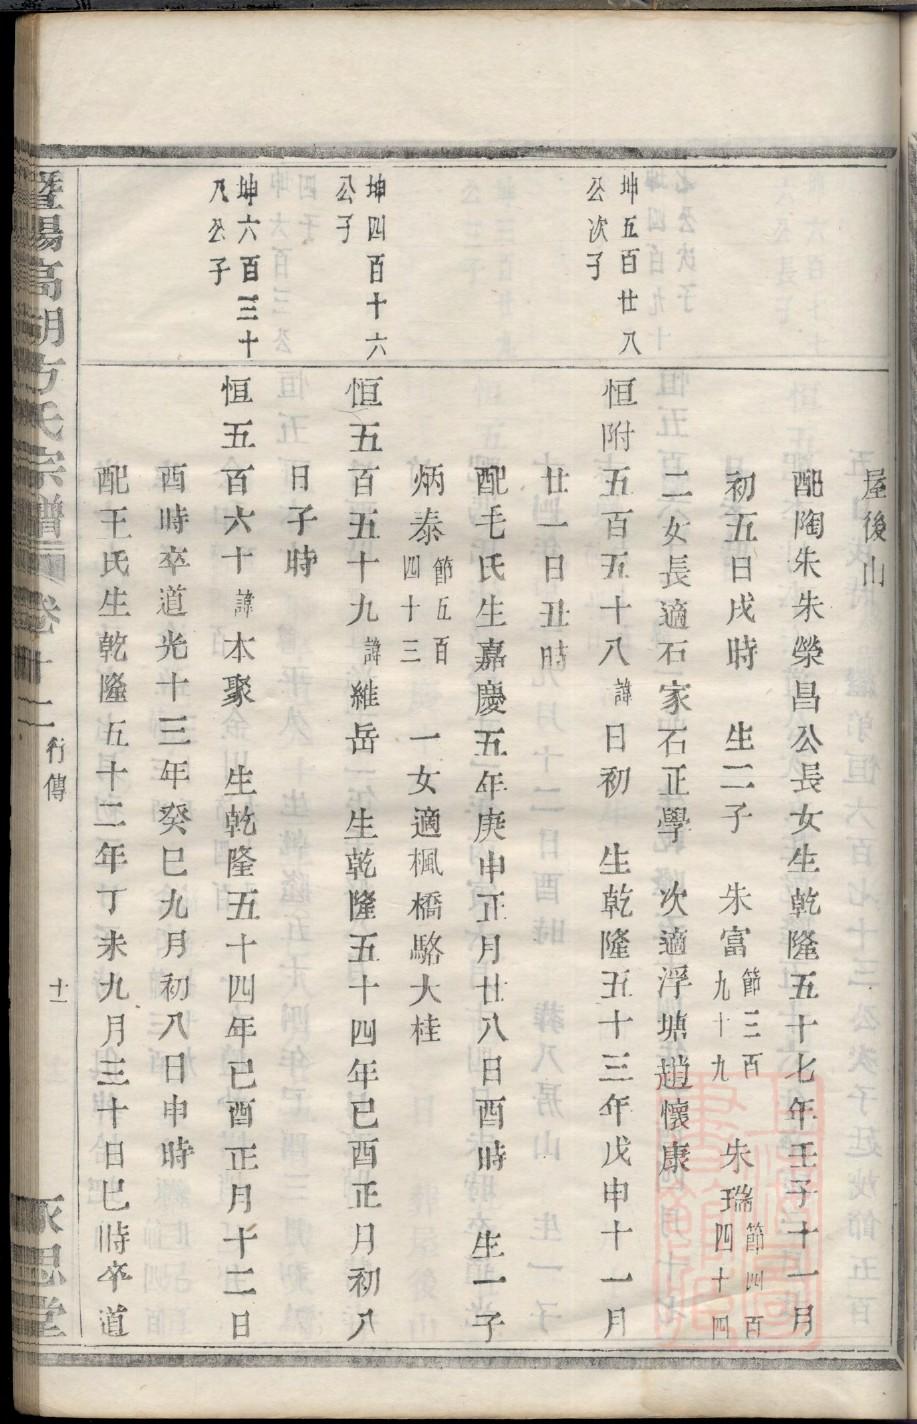 屋後山
配陶朱朱榮昌公長女生乾隆五十七年壬子十一月
初五日戌時　生二子　朱富節三百九十九　朱瑞節四百四十四
二女長適石家石正學　次適浮塘趙懷康
坤五百廿八公次子
恒附五百五十八諱日初　生乾隆五十三年戊申十一月
廿一日丑時
配毛氏生嘉慶五年庚申正月廿八日酉時　生一子
炳泰節五百四十三　一女適楓橋駱大桂
坤四百十六公子
恒五百五十九諱維岳　生乾隆五十四年己酉正月初八
日子時
坤六百三十八公子
恒五百六十諱本聚　生乾隆五十四年己酉正月十二日
酉時卒道光十三年癸巳九月初八日申時
配王氏生乾隆五十二年丁未九月三十日巳時卒道
暨陽高湖方氏宗譜　卷十二　行傳　十一　永思堂